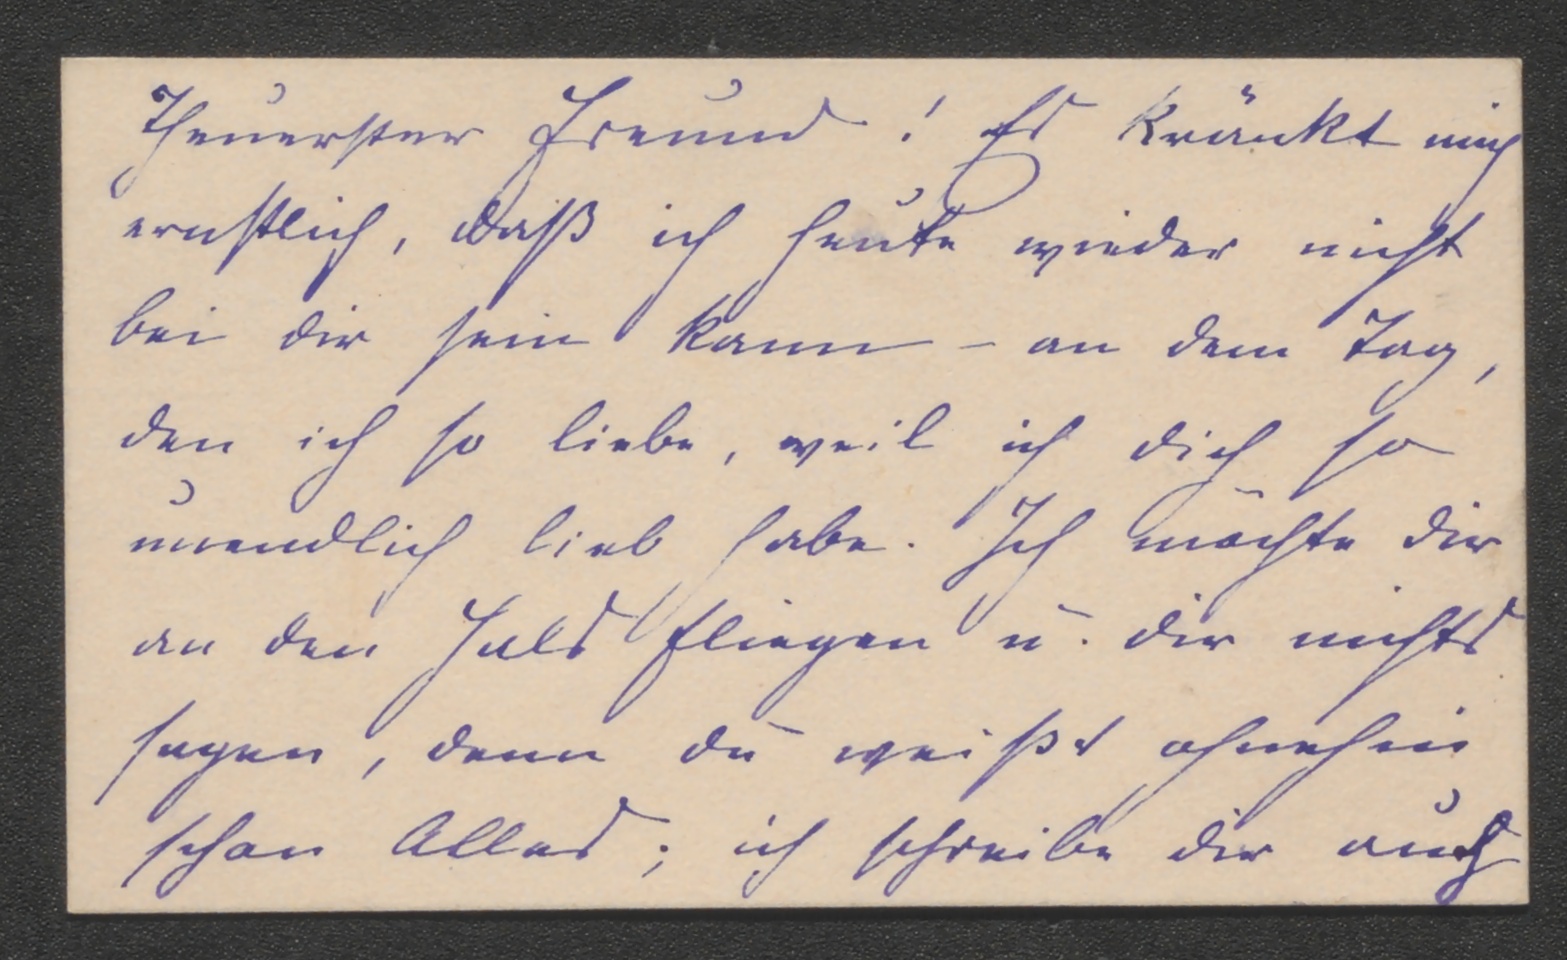 Theuerster Freund! Es kränkt mich
ernstlich, daß ich heute wieder nicht
bei dir sein kann – an dem Tag,
den ich so liebe, weil ich dich so
unendlich lieb habe. Ich möchte dir
an den Hals fliegen u. dir nichts
sagen, denn du weißt ohnehin
schon Alles; ich schreibe dir auch